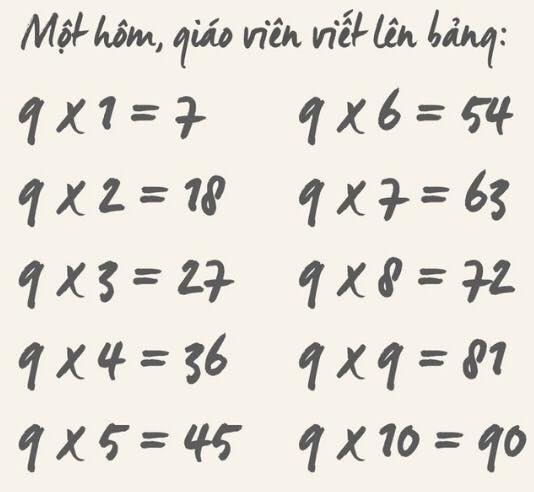 Một hôm, giáo viên viết lên bảng:
9 x 1 = 7
9 x 2 = 18
9 x 3 = 27
9 x 4 = 36
9 x 5 = 45
9 x 6 = 54
9 x 7 = 63
9 x 8 = 72
9 x 9 = 81
9 x 10 = 90